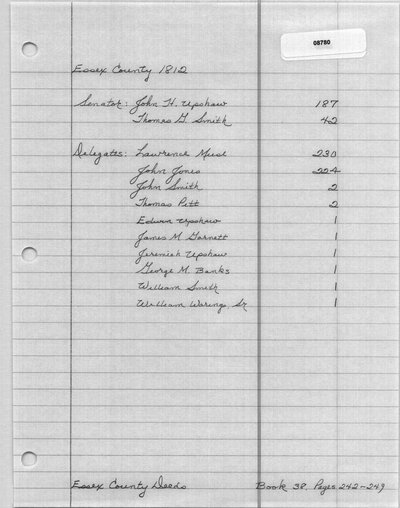 08780
Essex County 1812
Senator: John H. Upshaw 187
Thomas G. Smith 42
Delegates: Lawrence Muse 230
John Jones 224
John Smith 2
Thomas Pitt 2
Edwin Upshaw 1
James M. Garnett 1
Jeremiah Upshaw 1
George M. Banks 1
William Smith 1
William Waring, Sr 1
Essex County Deeds Book 38, Pages 242-249